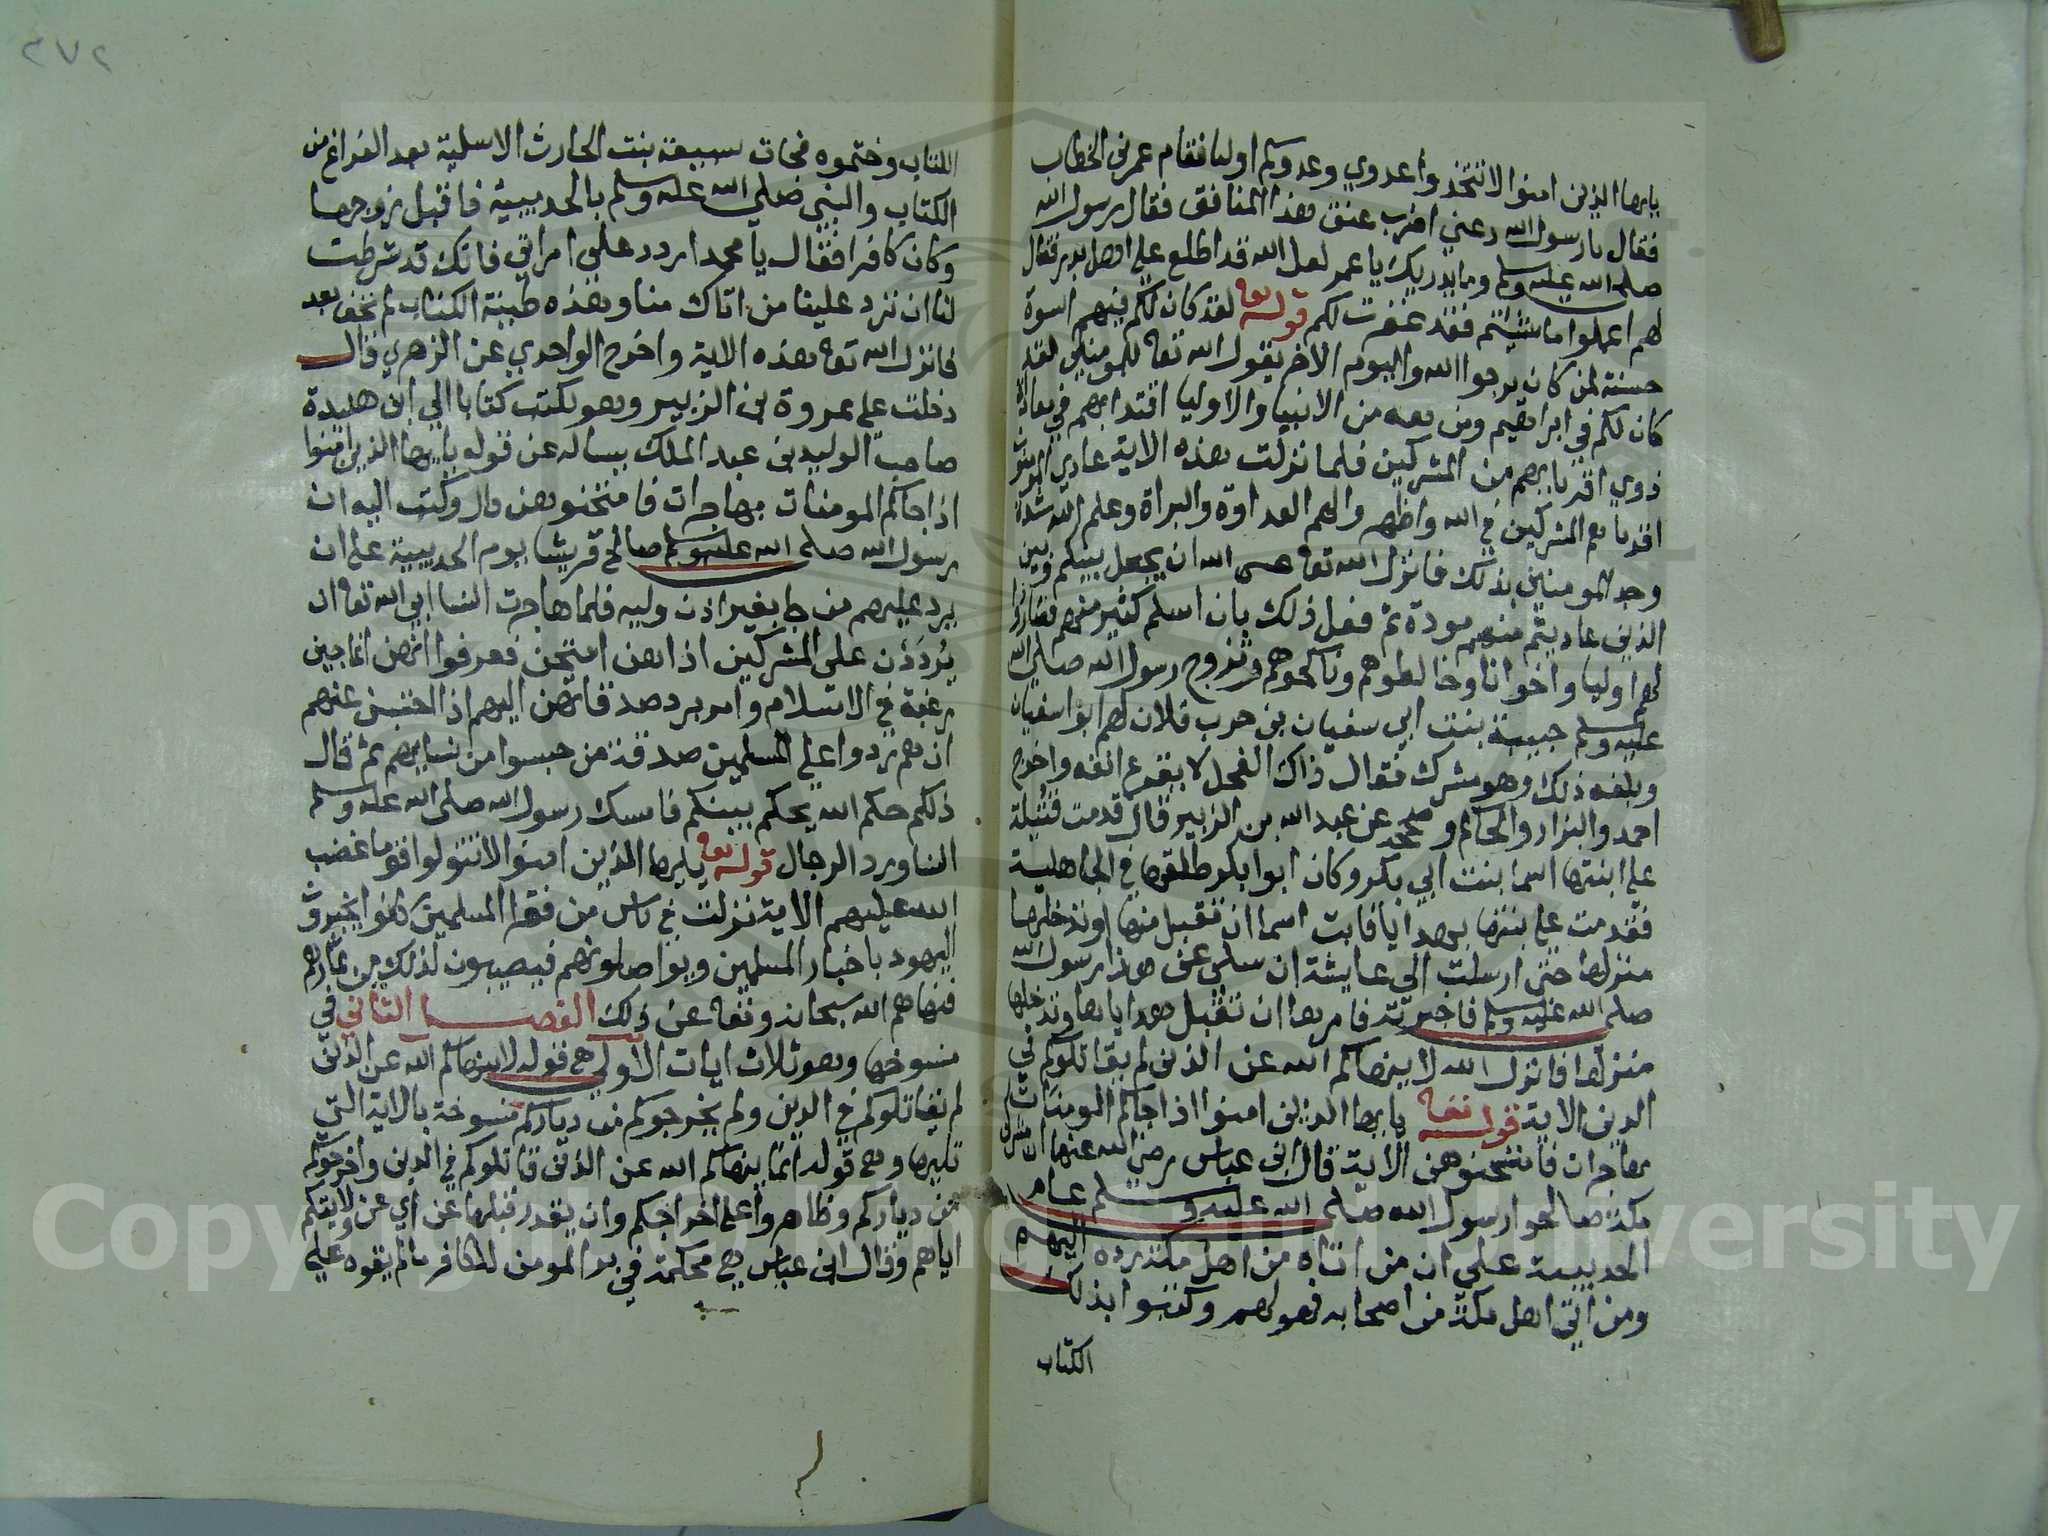 يايها الذين امنوا لا تتخذوا عدوي وعدوكم اوليا فقام عمر بن الخطاب
فقال يا رسول الله دعني اضرب عنق هذا المنافق فقال رسول الله
صلى الله عليه وسلم وما يدريك يا عمر لعل الله قد اطلع على اهل بدر فقال
لهم اعملوا ما شيتم فقد غفرت لكم قوله تعا لقد كان لكم فيهم اسوة
حسنة لمن كان يرجوا الله واليوم الاخر يقول الله تعا للمومنين لقد
كان لكم في ابراهيم ومن معه من الانبيا والاوليا اقتدا بهم في معاداة
ذوي اقربايهم من المشركين فلما نزلت هذه الاية عادي المومنون
اقرباهم المشركين في الله واظهروا لهم العداوة والبراة وعلم الله شدة
وجد المومنين بذلك فانزل الله تعا عسى الله ان يجعل بينكم وبين
الذين عاديتم منهم مودة ثم فعل ذلك بان اسلم كثير منهم فصاروا
لهم اوليا واخوانا وخالطوهم وناكحوهم وتزوج رسول الله صلى الله
عليه وسلم حبيبة بنت ابي سفيان بن حرب فلان لهم ابو سفيان
وبلغه ذلك وهو مشرك فقال ذاك الفحل لا يقدع انفه واخرج
احمد والبزار والحاكم وصححه عن عبد الله بن الزبير قال قدمت قتيلة
على ابنتها اسما بنت ابي بكر وكان ابوا بكر طلقها في الجاهلية
فقدمت على بنتها بهدايا فابت اسما ان تقبل منها او تدخلها
منزلها حتى ارسلت الى عايشة ان سلي عن هذا رسول الله
صلى الله عليه وسلم فاخبرته فامرها ان تقبل هداياها وتدخلها
منزلها فانزل الله لا ينهاكم الله عن الذين لم يقاتلوكم في
الدين الاية قوله تعا يايها الذين امنوا اذا جاكم المومنات
مهاجرات فامتحنوهن الاية قال ابن عباس رضي الله عنها ان مشركي
مكة صالحوا رسول الله صلى الله عليه وسلم عام
الحديبية على ان من اتاه من اهل مكة رده اليهم
ومن اتى اهل مكة من اصحابه فهو لهم وكتبوا بذلك
الكتاب
٢٧٢
الكتاب وختموه فجات سبيعة بنت الحارث الاسلمية بعد الفراغ من
الكتاب والنبي صلى الله عليه وسلم بالحديبية فاقبل زوجها
وكان كافرا فقال يا محمد اردد على امراتي فانك قد شرطت
لنا ان ترد علينا من اتاك منا وهذه طينة الكتاب لم تخف بعد
فانزل الله تعا هذه الاية واخرج الواحدي عن الزهري قال
دخلت على عروة بن الزبير وهو يكتب كتابا الى ابن هنيدة
صاحب الوليد بن عبد الملك يساله عن قوله يايها الذين امنوا
اذا جاكم المومنات مهاجرات فامتحنوهن قال وكتب اليه ان
رسول الله صلى الله عليه وسلم صالح قريشا يوم الحديبية على ان
يرد عليهم من جا بغير اذن وليه فلما هاجرت النسا ابى الله تعا ان
يرددن على المشركين اذا هن امتحن فعرفوا انهن انما جين
رغبة في الاسلام وامر برد صدقاتهن اليهم اذا احتبسن عنهم
ان هم ردوا على المسلمين صدقة من حبسوا من نسايهم ثم قال
ذلكم حكم الله يحكم بينكم فامسك رسول الله صلى الله عليه وسلم
النسا ورد الرجال قوله تعا يايها الذين امنوا لا تتولوا قوما غضب
الله عليهم الاية نزلت في ناس من فقرا المسلمين كانوا يخبرون
اليهود باخبار المسلمين ويواصلونهم فيصيبون لذلك من ثمارهم
فنهاهم الله سبحانه وتعا عن ذلك الفصل الثاني في
منسوخها وهو ثلاث ايات الاولى هي قوله لا ينهاكم الله عن الذين
لم يقاتلوكم في الدين ولم يخرجوكم من دياركم منسوخة بالاية التي
تليها وهي قوله انما ينهاكم الله عن الذين قاتلوكم في الدين واخرجوكم
من دياركم وظاهروا على اخراجكم وان يقدر قبلها عن اي عن ولايتكم
اياهم وقال ابن عباس هي محكمة في بر المومن للكافر ما لم يقوه على
Copyright © King Saud University